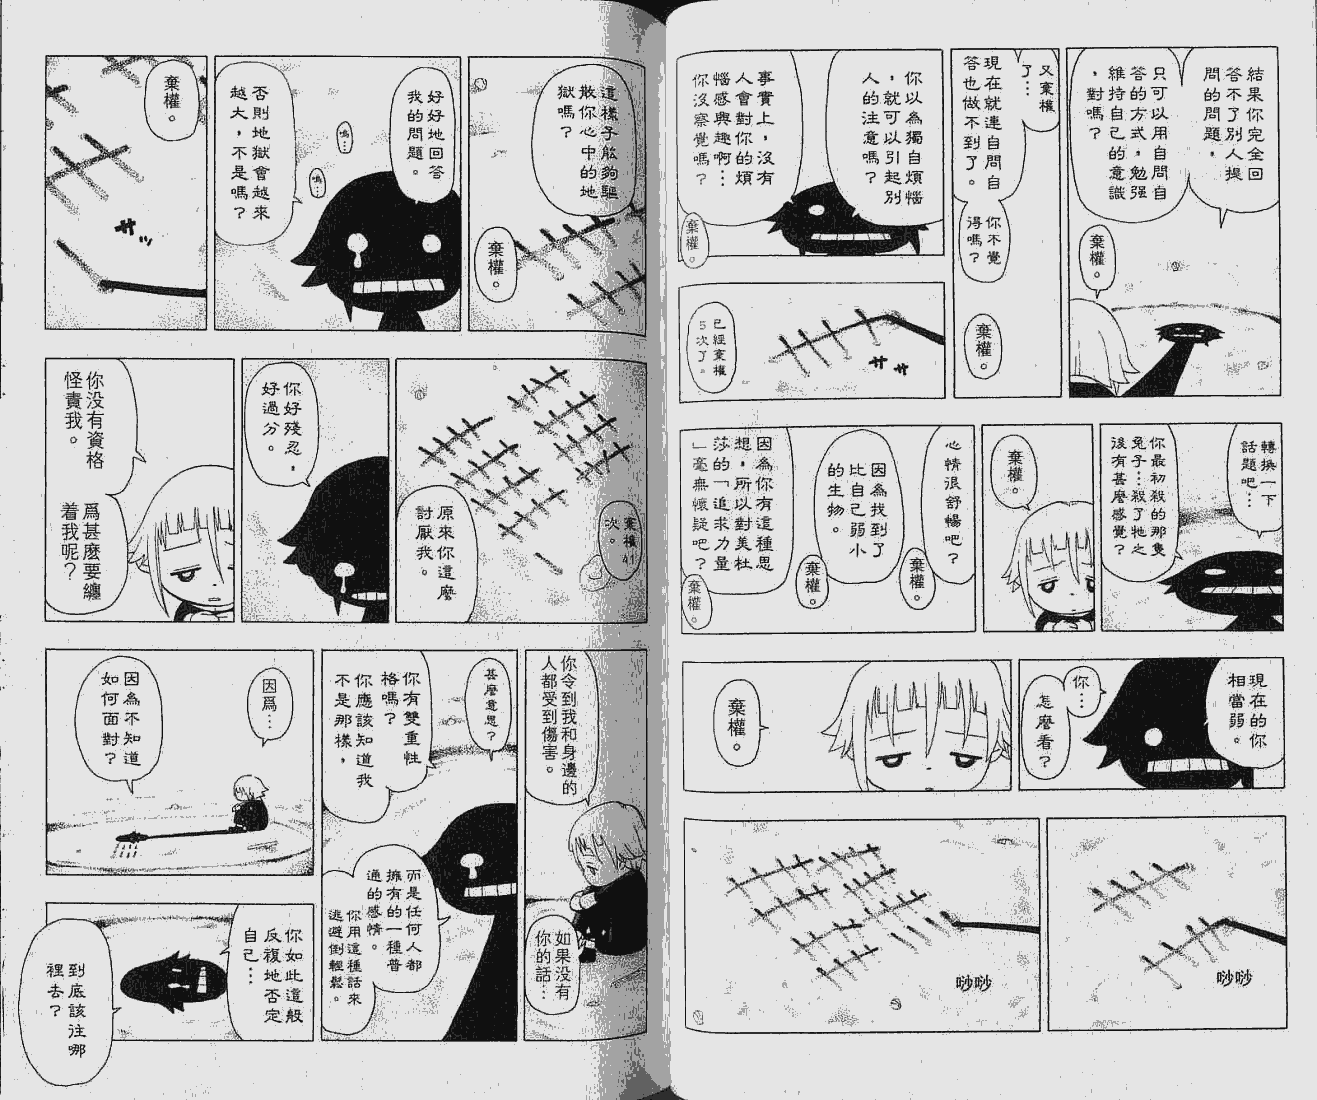 結果你完全回
答不了別人提
問的問題，
只可以用自問自
答的方式，勉强
維持自己的意識
，對嗎？
棄權。
又棄權
了…
現在就連自問自
答也做不到了。
你不覺
得嗎？
棄權。
你以為獨自煩惱
，就可以引起別
人的注意嗎？
事實上，沒有
人會對你的煩
惱感興趣啊…
你沒察覺嗎？
棄權。
已經棄權
5次了。
ササ
轉換一下
話題吧…
你最初殺的那隻
兔子…殺了牠之
後有甚麼感覺？
棄權。
心情很舒暢吧？
棄權。
因為找到了
比自己弱小
的生物。
棄權。
因為你有這種思
想，所以對美杜
莎的「追求力量
」毫無懷疑吧？
棄權。
現在的你
相當弱。
你…
怎麼看？
棄權。
唦唦
唦唦
這樣子能夠驅
散你心中的地
獄嗎？
棄權。
好好地回答
我的問題。
嗚…
嗚…
否則地獄會越來
越大，不是嗎？
棄權。
サッ
棄權41
次。
原來你這麼
討厭我。
你好殘忍，
好過分。
你没有資格
怪責我。
爲甚麼要纏
着我呢？
你令到我和身邊的
人都受到傷害。
如果没有
你的話…
甚麼意思？
你有雙重性
格嗎？
你應該知道我
不是那樣，
而是任何人都
擁有的一種普
通的感情。
你用這種話來
逃避倒輕鬆。
因爲…
因為不知道
如何面對？
你如此這般
反複地否定
自己…
到底該往哪
裡去？